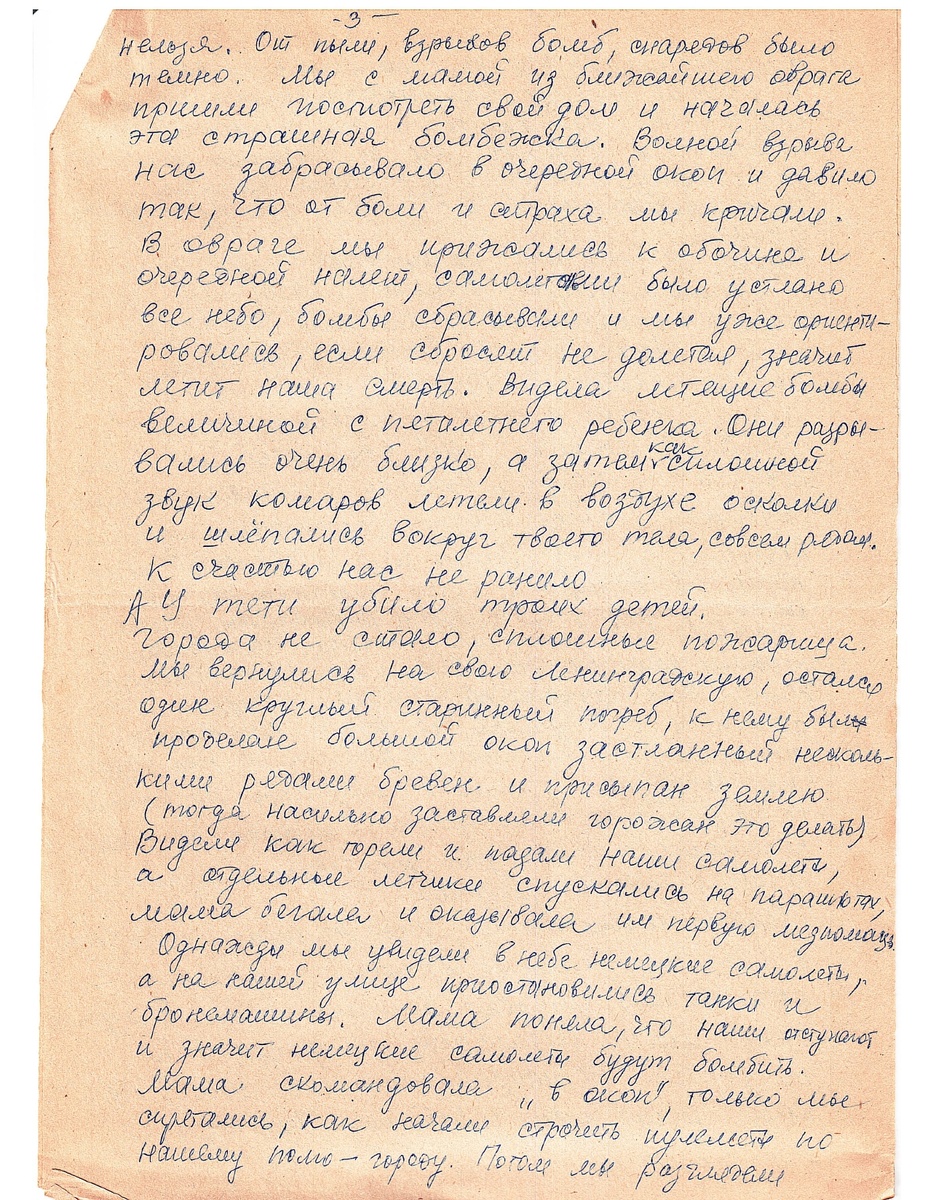 -3-
нельзя. От пыли, взрывов бомб, снарядов было
темно. Мы с мамой из ближайшего оврага
пришли посмотреть свой дом и началась
эта страшная бомбежка. Волной взрыва
нас забрасывало в очередной окоп и давило
так, что от боли и страха мы кричали.
В овраге мы прижались к обочине и
очередной налет, самолетами было устлано
все небо, бомбы сбрасывали и мы уже ориенти-
ровались, если сбросят не долетая, значит
летит наша смерть. Видела летящие бомбы
величиной с пяталетнего ребенка. Они разры-
вались очень близко, а затем как сплошной
звук комаров летели в воздухе осколки
и шлёпались вокруг твоего тела, совсем рядом.
К счастью нас не ранило
А У тети убило троих детей.
Города не стало, сплошные пожарища.
Мы вернулись на свою Ленинградскую, остался
один круглый старинный погреб, к нему был
проделан большой окоп застланный несколь-
кими рядами бревен и присыпан землею
(тогда насильно заставляли горожан это делать)
Видели как горели и падали наши самолеты,
а отдельные летчики спускались на парашютах,
мама бегала и оказывала им первую медпомощь.
Однажды мы увидели в небе немецкие самолеты,
а на нашей улице приостановились танки и
бронемашины. Мама поняла, что наши отступают
и значит немецкие самолеты будут бомбить.
Мама скомандовала „в окоп", только мы
спрятались, как начали строчить пулеметы по
нашему полю - городу. Потом мы разглядели